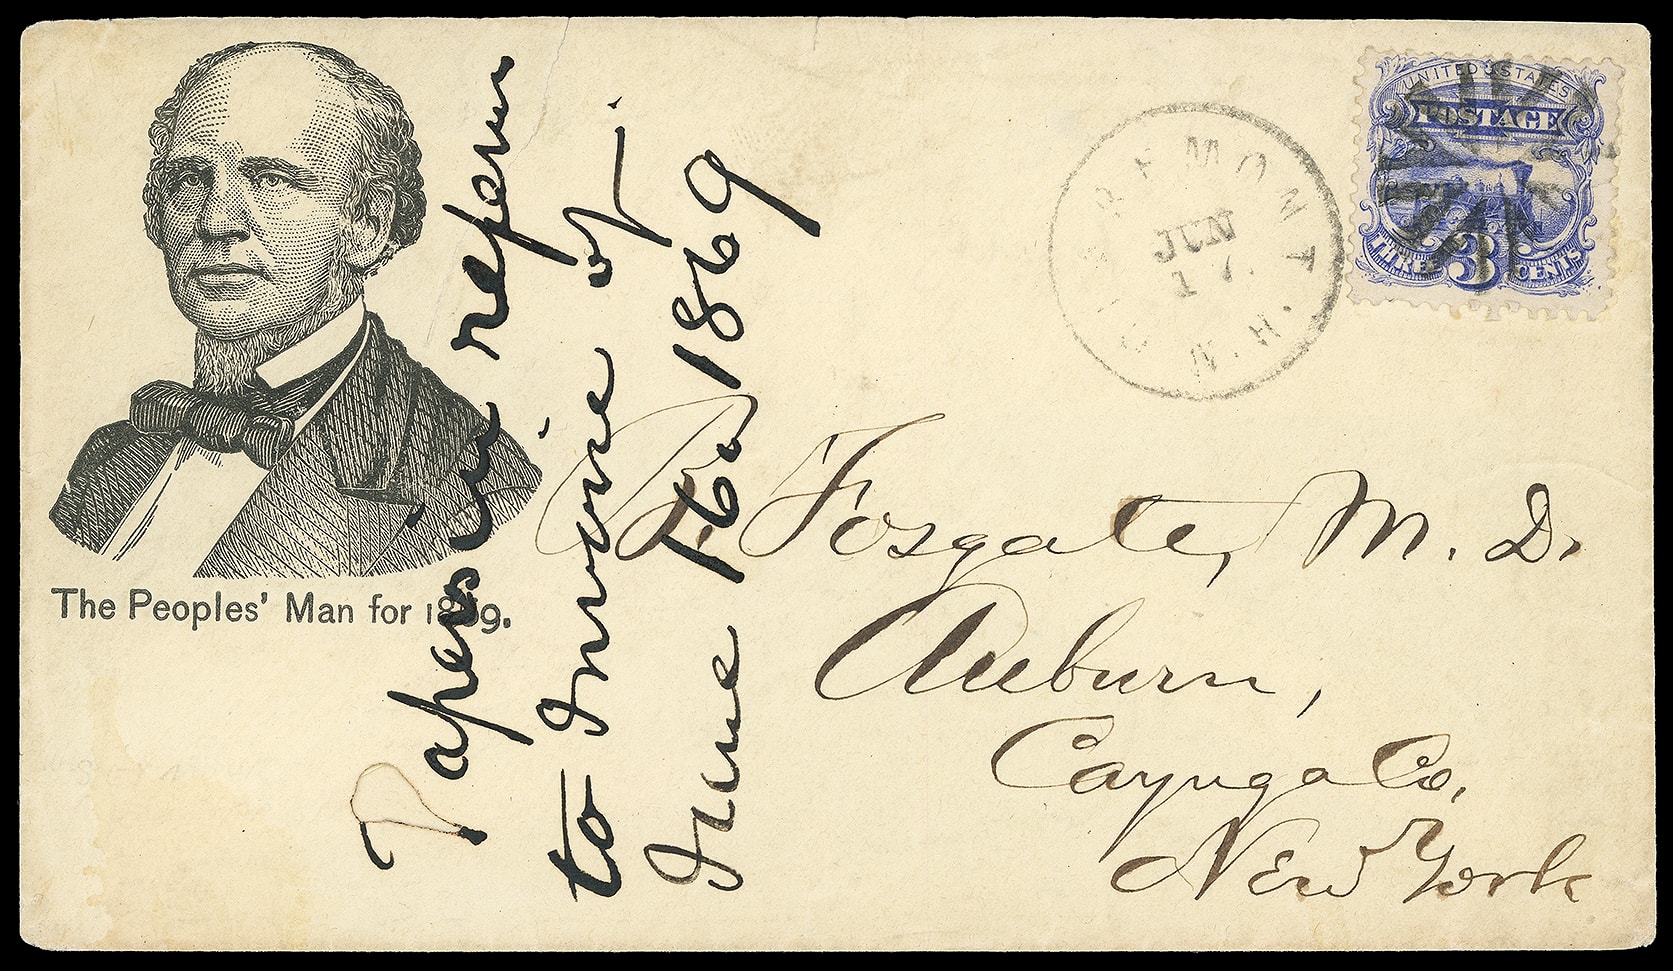 The Peoples' Man for 1869.
Papers in repenn
to Inquirie of
June 16. 1869
CLAREMONT. N.H.
JUN
17.
UNITED STATES
POSTAGE
THREE 3 CENTS
B. Fosgate, M. D.
Auburn,
Cayuga Co,
New York